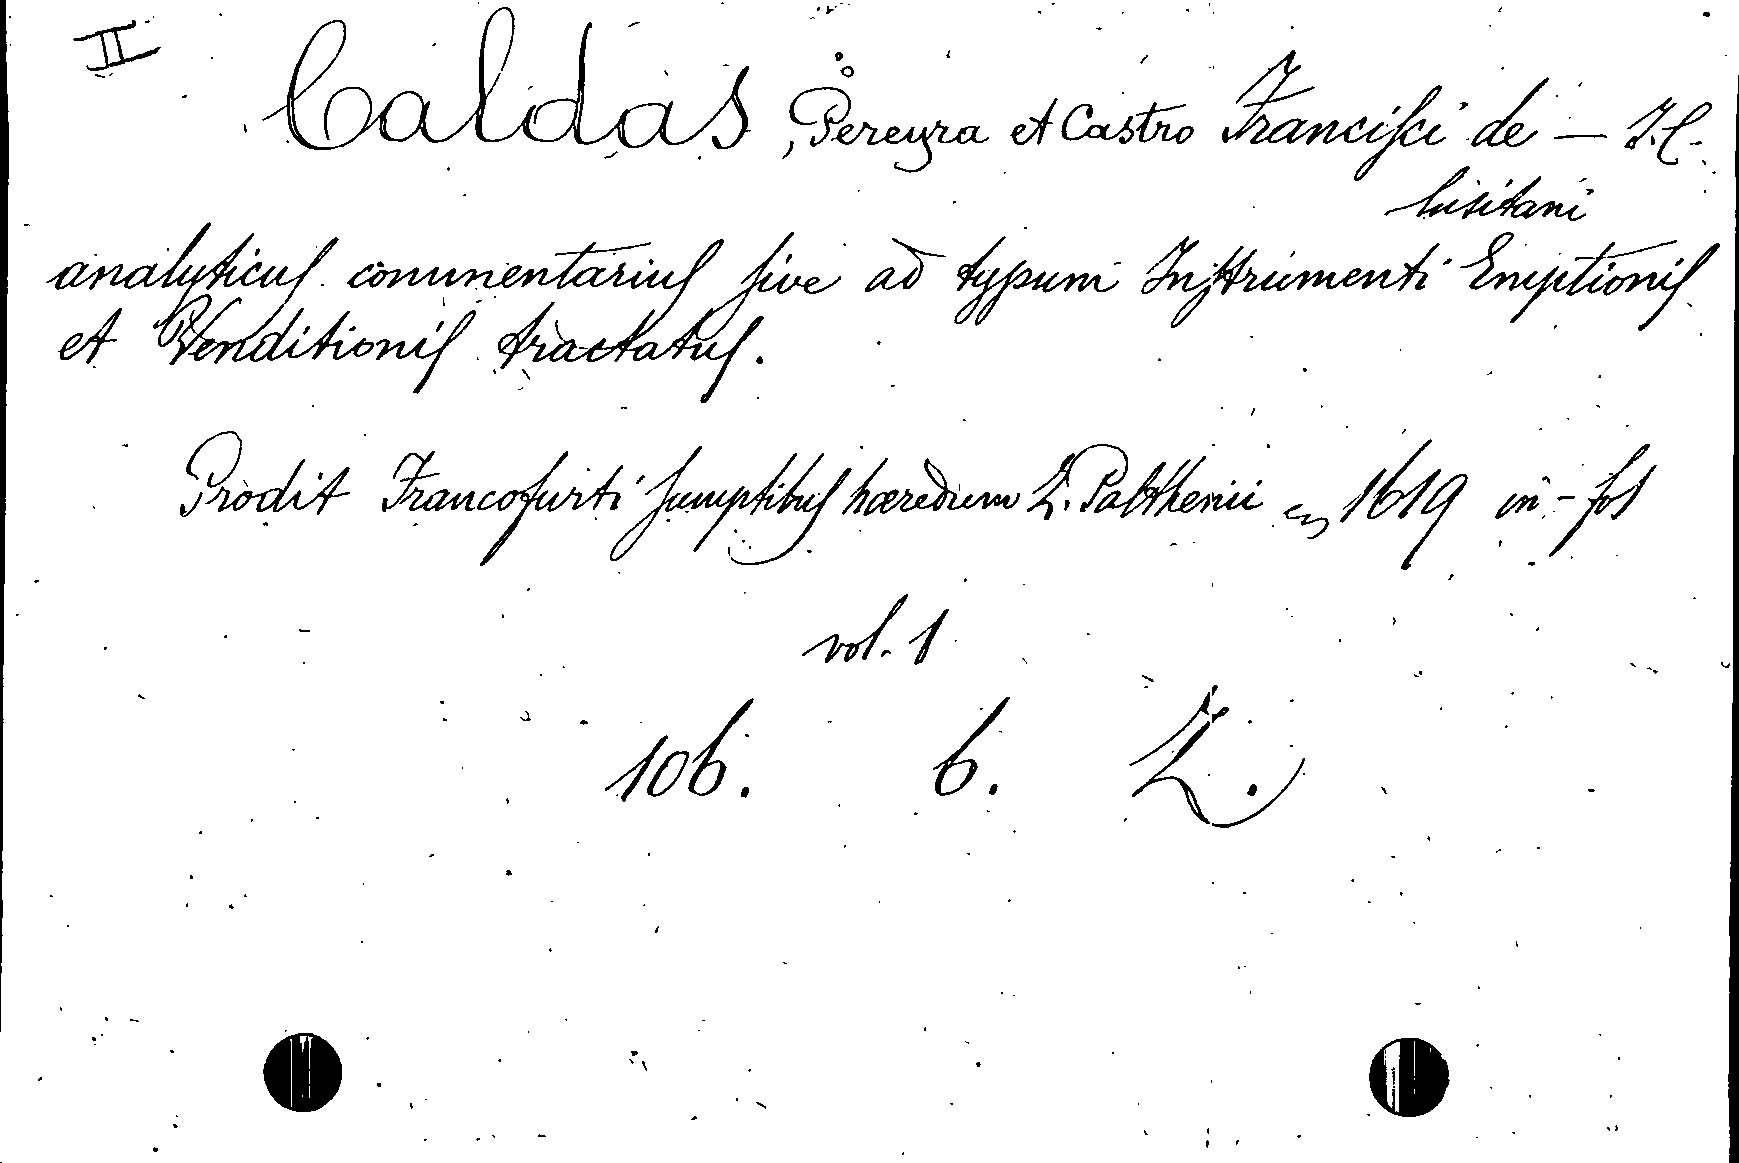 II
Caldas, Pereyra et Castro Francisci de — J.C.
lusitani
analyticus commentarius sive ad typum Instrumenti Emptionis
et Venditionis tractatus.
Prodit Francofurti sumptibus hœredum Z. Palthenii en 1619 in-fol
vol. 1
106. 6. Z.